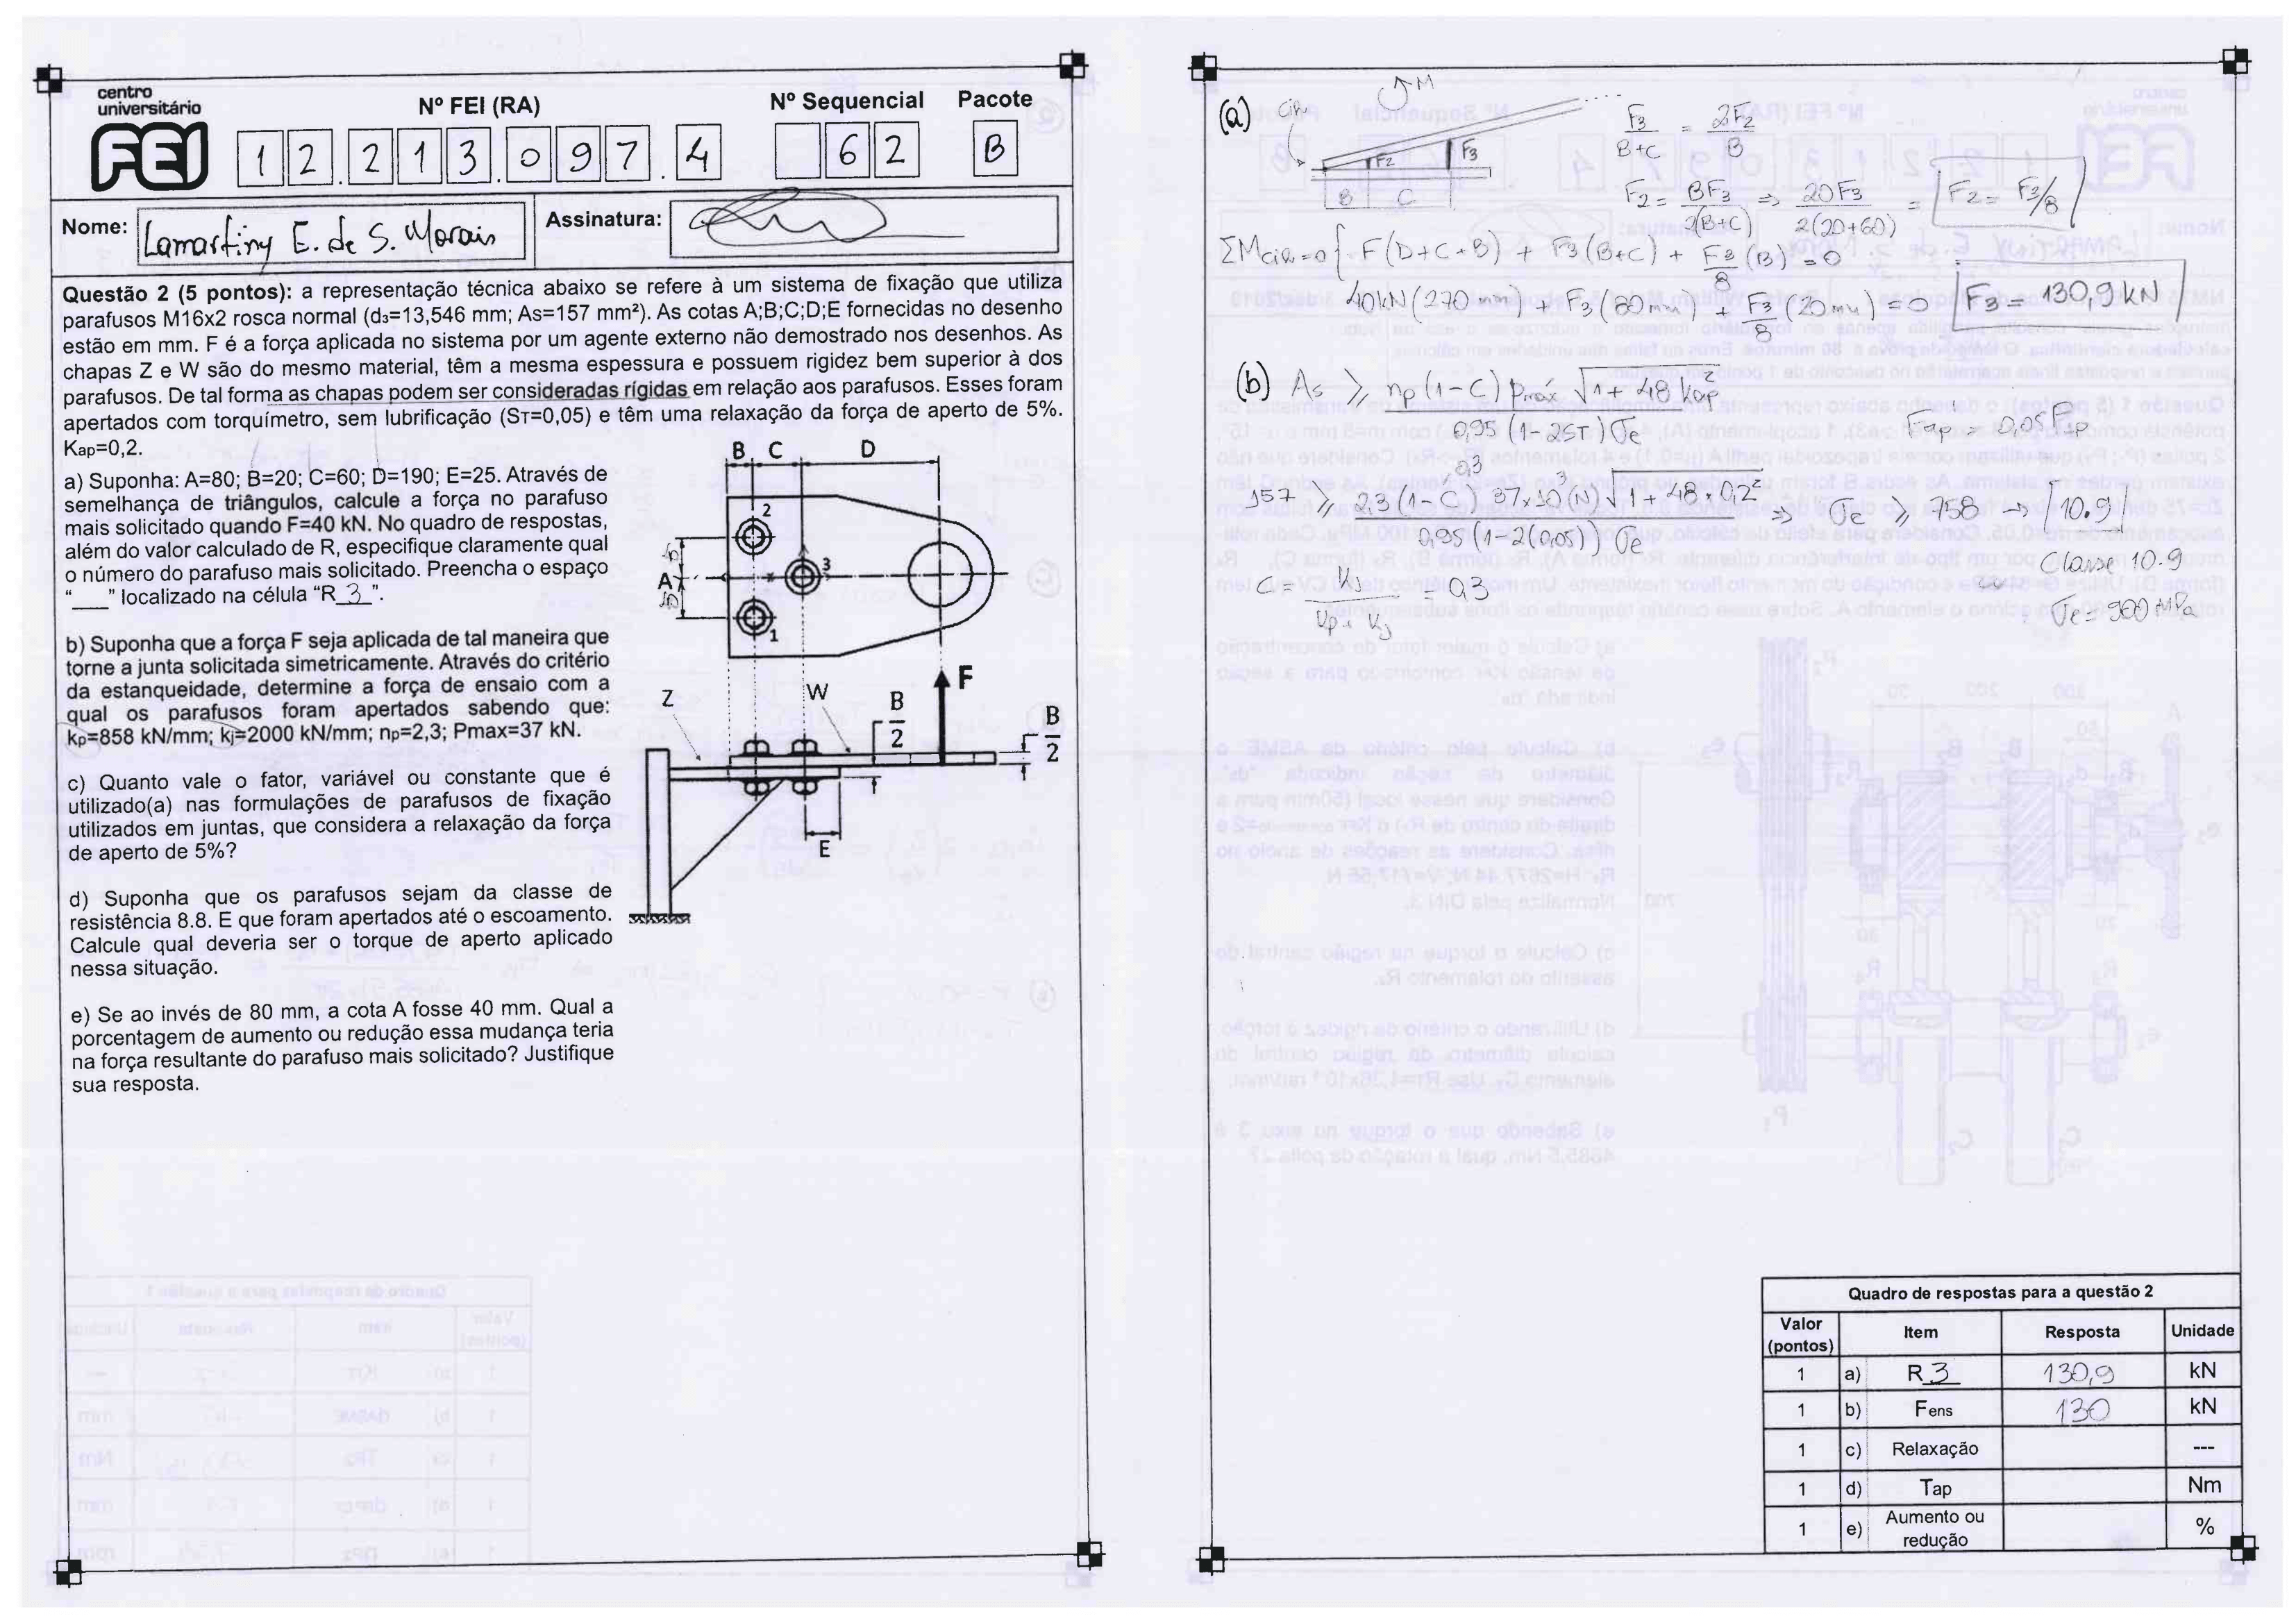 centro
universitário
FEI
Nº FEI (RA)
Nº Sequencial
Pacote
1 2 . 2 1 3 . 0 9 7 . 4
6 2
B
Nome: Lamartiny E. de S. Morais
Assinatura:
Questão 2 (5 pontos): a representação técnica abaixo se refere à um sistema de fixação que utiliza
parafusos M16x2 rosca normal (d₃=13,546 mm; As=157 mm²). As cotas A;B;C;D;E fornecidas no desenho
estão em mm. F é a força aplicada no sistema por um agente externo não demostrado nos desenhos. As
chapas Z e W são do mesmo material, têm a mesma espessura e possuem rigidez bem superior à dos
parafusos. De tal forma as chapas podem ser consideradas rígidas em relação aos parafusos. Esses foram
apertados com torquímetro, sem lubrificação (Sᴛ=0,05) e têm uma relaxação da força de aperto de 5%.
Kap=0,2.
a) Suponha: A=80; B=20; C=60; D=190; E=25. Através de
semelhança de triângulos, calcule a força no parafuso
mais solicitado quando F=40 kN. No quadro de respostas,
além do valor calculado de R, especifique claramente qual
o número do parafuso mais solicitado. Preencha o espaço
“____” localizado na célula “R_3_”.
b) Suponha que a força F seja aplicada de tal maneira que
torne a junta solicitada simetricamente. Através do critério
da estanqueidade, determine a força de ensaio com a
qual os parafusos foram apertados sabendo que:
kp=858 kN/mm; kj=2000 kN/mm; np=2,3; Pmax=37 kN.
c) Quanto vale o fator, variável ou constante que é
utilizado(a) nas formulações de parafusos de fixação
utilizados em juntas, que considera a relaxação da força
de aperto de 5%?
d) Suponha que os parafusos sejam da classe de
resistência 8.8. E que foram apertados até o escoamento.
Calcule qual deveria ser o torque de aperto aplicado
nessa situação.
e) Se ao invés de 80 mm, a cota A fosse 40 mm. Qual a
porcentagem de aumento ou redução essa mudança teria
na força resultante do parafuso mais solicitado? Justifique
sua resposta.
B C D
2
A 3
1
F
Z W B/2 B/2
E
(a) CIR M
F2 F3
B C
F3/(B+C) = 2F2/B
F2 = BF3/2(B+C) => 20F3/2(20+60) = F2 = F3/8
ΣMCIR=0 { F(D+C+B) + F3(B+C) + F3/8 (B) = 0
40kN(270mm) + F3(80mm) + F3/8 (20mm) = 0 F3 = 130,9 kN
(b) As ≥ np(1-C) pmáx √1+48 kap² / 0,95 (1-2ST) σe
Fap = 0,05Fp
0,3
157 ≥ 2,3 (1-C) 37×10³(N) √1+48×0,2² / 0,95 (1-2(0,05)) σe => σe ≥ 758 → 10.9
Classe 10.9
σe = 900 MPa
C = kj / kp+kj = 0,3
Quadro de respostas para a questão 2
Valor (pontos) Item Resposta Unidade
1 a) R 3 130,9 kN
1 b) Fens 130 kN
1 c) Relaxação ---
1 d) Tap Nm
1 e) Aumento ou redução %